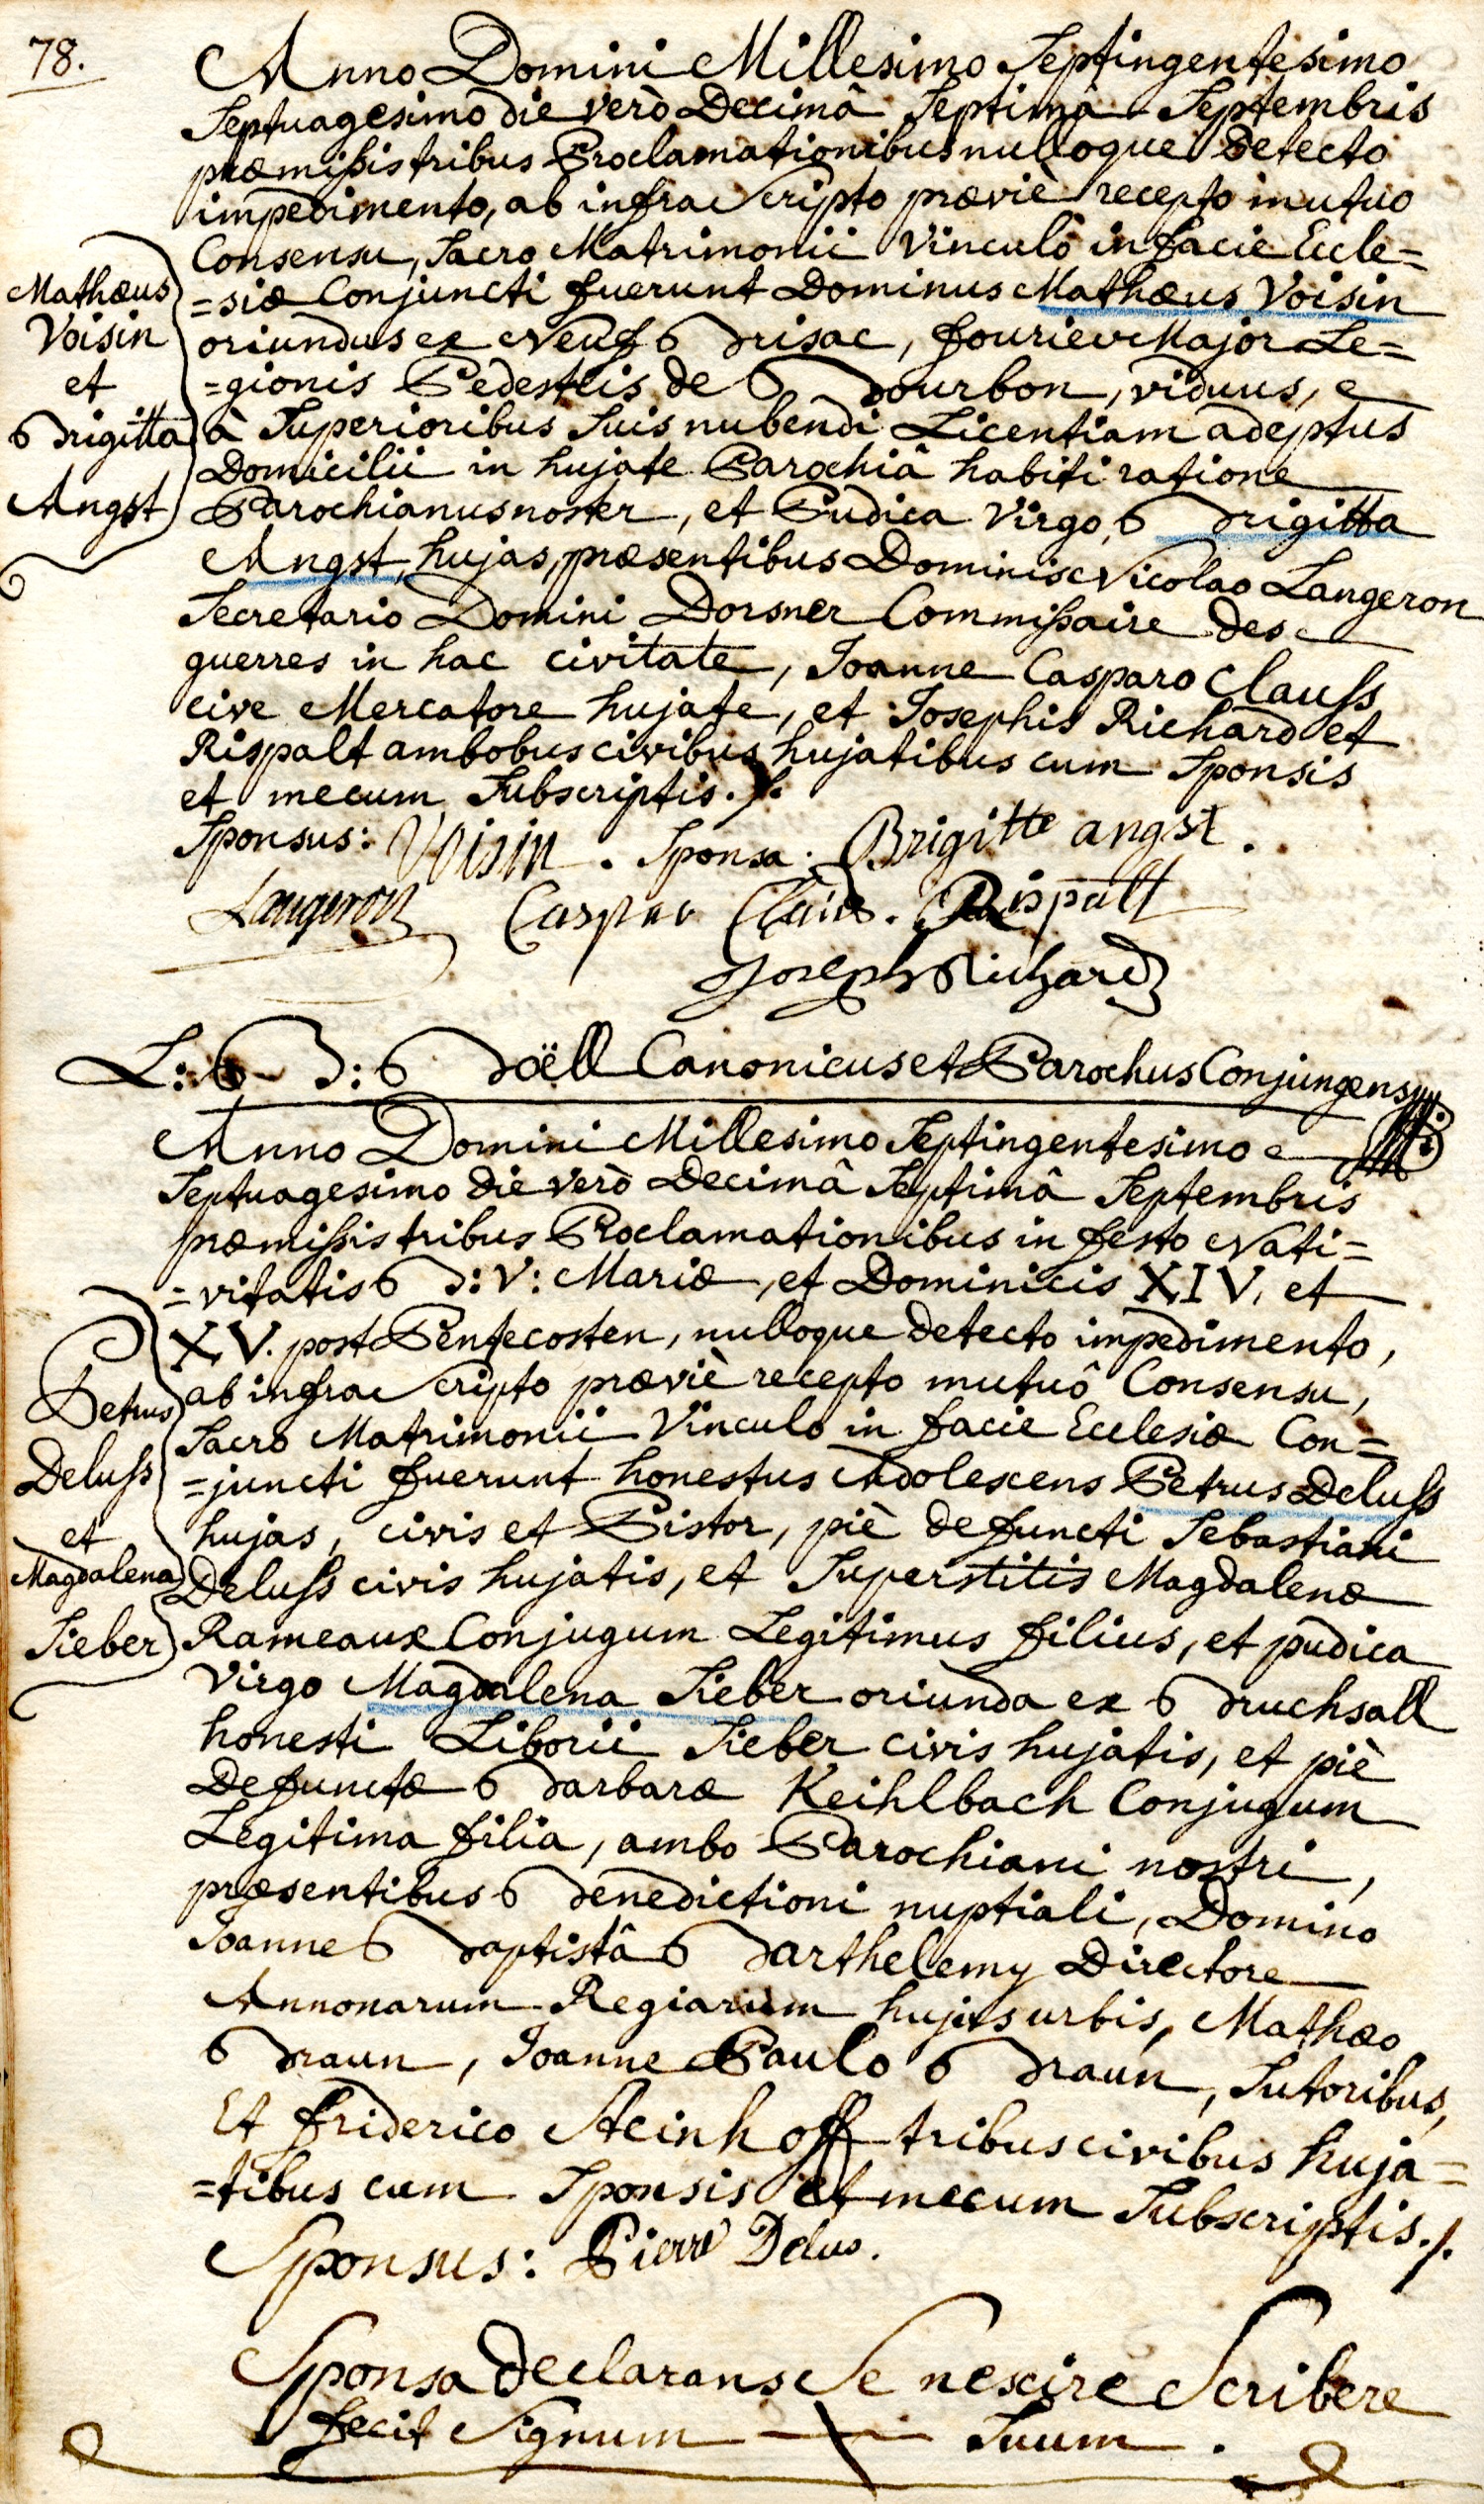 78.
Anno Domini Millesimo Septingentesimo
Septuagesimo die verò Decimâ Septimâ Septembris
præmissis tribus Proclamationibus nulloque Detecto
impedimento, ab infra Scripto præviè recepto mutuo
Consensu, Sacro Matrimonii Vinculô in facie Eccle=
=siæ Conjuncti fuerunt Dominus Mathæus Voisin
oriundus ex Neuf Brisac, fourier Major Le=
=gionis Pedestris de Bourbon, viduus,
à Superioribus Suis nubendi Licentiam adeptus
Domicilii in hujate Parochiâ habiti ratione
Parochianus noster, et Pudica Virgo, Brigitta
Angst, hujas, præsentibus Dominis Nicolao Langeron
Secretario Domini Dorsner Commissaire des
guerres in hac civitate, Joanne Casparo Clauss
cive Mercatore hujate, et Josephis Richard et
Rispalt ambobus civibus hujatibus cum Sponsis
et mecum Subscriptis ./.
Mathæus
Voisin
et
Brigitta
Angst
Sponsus: Voisin . Sponsa . Brigitte angst .
Langeron Caspar Claus . Rispalt
Joseph Richard
L: B: Boëll Canonicus et Parochus Conjungens
Anno Domini Millesimo Septingentesimo
Septuagesimo die verò Decimâ Septimâ Septembris
præmissis tribus Proclamationibus in festo Nati=
=vitatis B: V: Mariæ, et Dominicis XIV. et
XV. post Pentecosten, nulloque detecto impedimento,
ab infra Scripto præviè recepto mutuô Consensu,
Sacro Matrimonii Vinculo in facie Ecclesiæ Con=
=juncti fuerunt honestus Adolescens Petrus Deluss
hujas, civis et Pistor, piè defuncti Sebastiani
Deluss civis hujatis, et Superstitis Magdalenæ
Rameaux Conjugum Legitimus filius, et pudica
Virgo Magdalena Sieber oriunda ex Bruchsall
honesti Liborii Sieber civis hujatis, et piè
Defunctæ Barbaræ Keihlbach Conjugum
Legitima filia, ambo Parochiani nostri,
præsentibus Benedictioni nuptiali, Domino
Joanne Baptistâ Barthelemy Directore
Annonarum Regiarum hujus urbis, Mathæo
Braun, Joanne Paulo Braun, Sutoribus,
Et friderico Steinhoff tribus civibus huja=
=tibus cum Sponsis et mecum Subscriptis ./.
Petrus
Deluss
et
Magdalena
Sieber
Sponsus: Pierre Delus.
Sponsa declarans Se nescire Scribere
fecit Signum + Suum .